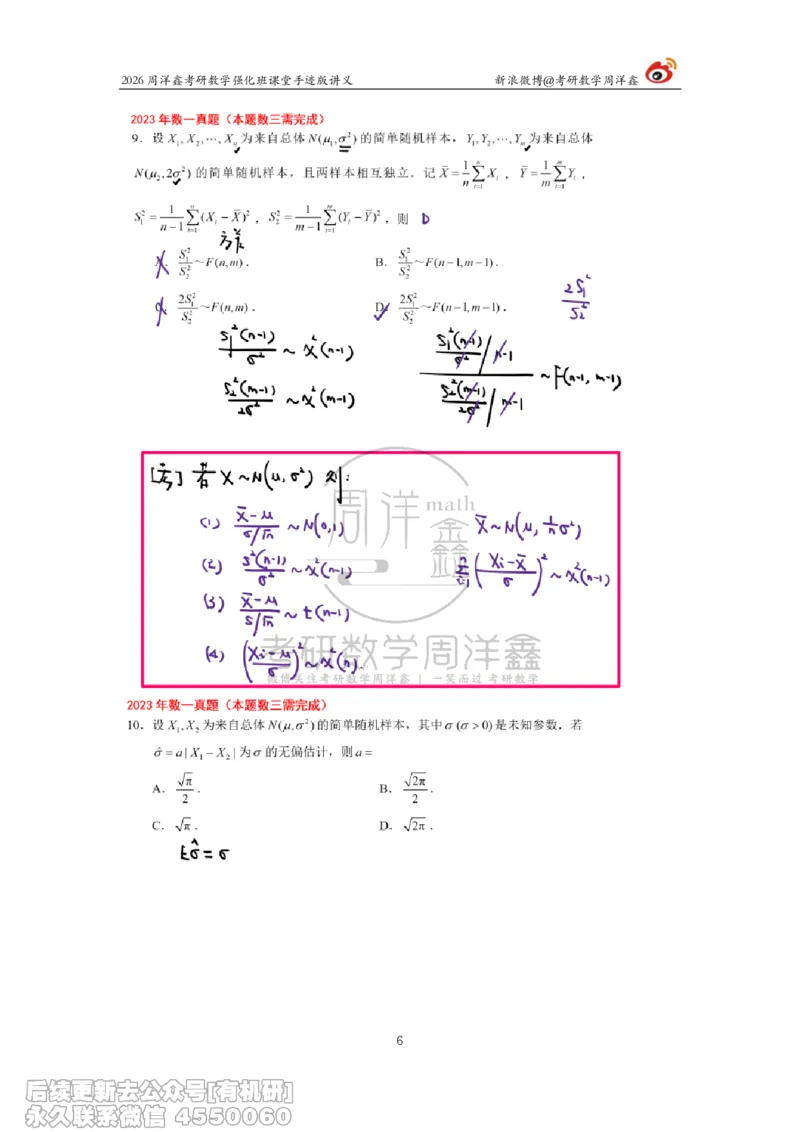 2026周洋鑫考研数学强化班课堂手迹版讲义 新浪微博@考研数学周洋鑫
2023年数一真题（本题数三需完成）
9．设 X₁, X₂, ⋯, Xₙ 为来自总体 N(μ₁, σ²) 的简单随机样本，Y₁, Y₂, ⋯, Yₘ 为来自总体
N(μ₂, 2σ²) 的简单随机样本，且两样本相互独立．记 X̄ = 1/n ∑ᵢ₌₁ⁿ Xᵢ ，Ȳ = 1/m ∑ᵢ₌₁ᵐ Yᵢ ，
S₁² = 1/(n−1) ∑ᵢ₌₁ⁿ (Xᵢ − X̄)² ，S₂² = 1/(m−1) ∑ᵢ₌₁ᵐ (Yᵢ − Ȳ)² ，则 D
方差
A． S₁²/S₂² ~ F(n, m)． B． S₁²/S₂² ~ F(n−1, m−1)．
C． 2S₁²/S₂² ~ F(n, m)． D． 2S₁²/S₂² ~ F(n−1, m−1)． 2S₁²/S₂²
S₁²(n−1)/σ² ~ χ²(n−1)
S₂²(m−1)/2σ² ~ χ²(m−1)
(S₁²(n−1)/σ² / n−1) / (S₂²(m−1)/2σ² / m−1) ~ F(n−1, m−1)
若 X~N(μ, σ²) 则:
(1) (X̄−μ)/(σ/√n) ~ N(0,1) X̄~N(μ, 1/n σ²)
(2) S²(n−1)/σ² ~ χ²(n−1) ∑ᵢ₌₁ⁿ ((Xᵢ−X̄)/σ)² ~ χ²(n−1)
(3) (X̄−μ)/(S/√n) ~ t(n−1)
(4) ((Xᵢ−μ)/σ)² ~ χ²(n).
周洋鑫 math
考研数学周洋鑫
微博关注考研数学周洋鑫 | 一笑而过 考研数学
2023年数一真题（本题数三需完成）
10．设 X₁, X₂ 为来自总体 N(μ, σ²) 的简单随机样本，其中 σ (σ > 0) 是未知参数．若
σ̂ = a | X₁ − X₂ | 为 σ 的无偏估计，则 a =
A． √π/2 ． B． √2π/2 ．
C． √π ． D． √2π ．
Eσ̂ = σ
6
后续更新去公众号[有机研]
永久联系微信 4550060